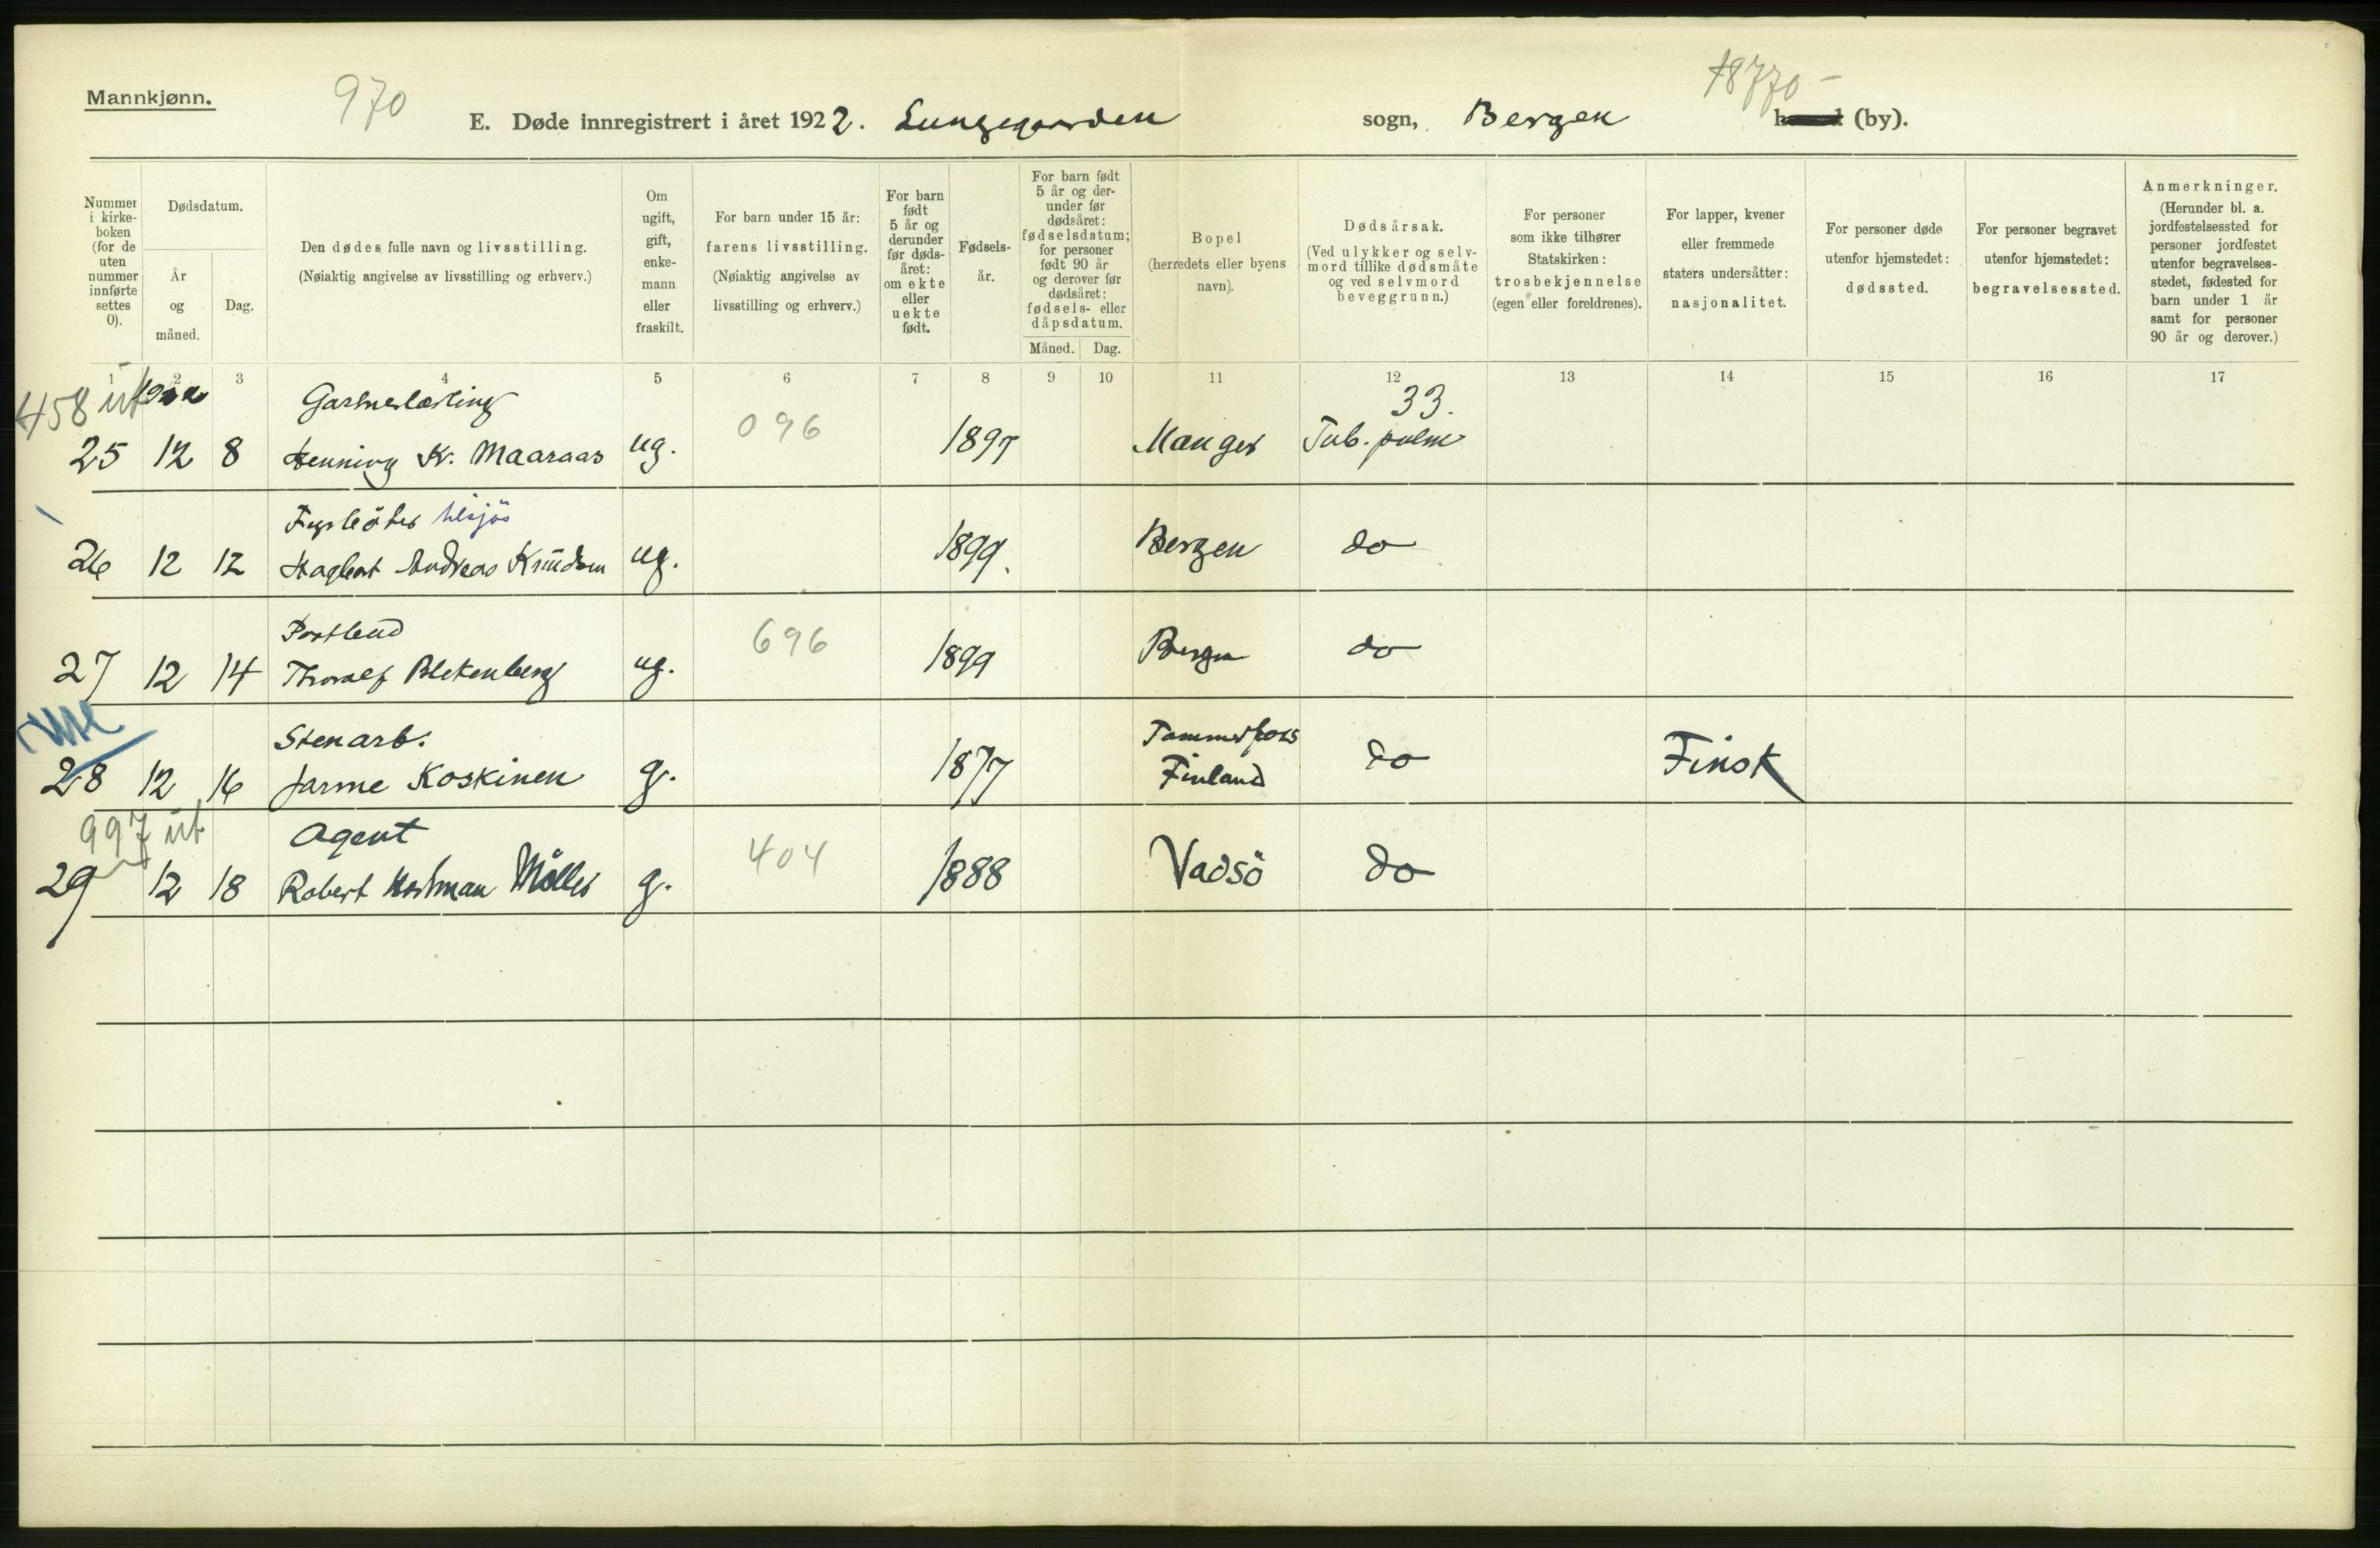 Mannkjønn.
970
18770 –
E. Døde innregistrert i året 1922. Lungegaarden sogn, Bergen (by).
Nummer i kirkeboken (for de uten nummer innførte settes 0).
Dødsdatum.
År og måned.
Dag.
Den dødes fulle navn og livsstilling.
(Nøiaktig angivelse av livsstilling og erhverv.)
Om ugift, gift, enkemann eller fraskilt.
For barn under 15 år: farens livsstilling.
(Nøiaktig angivelse av livsstilling og erhverv.)
For barn født 5 år og derunder før dødsåret: om ekte eller uekte født.
Fødselsår.
For barn født 5 år og derunder før dødsåret: fødselsdatum; for personer født 90 år og derover før dødsåret: fødsels- eller dåpsdatum.
Måned. Dag.
Bopel (herredets eller byens navn).
Dødsårsak.
(Ved ulykker og selvmord tillike dødsmåte og ved selvmord beveggrunn.)
For personer som ikke tilhører Statskirken: trosbekjennelse (egen eller foreldrenes).
For lapper, kvener eller fremmede staters undersåtter: nasjonalitet.
For personer døde utenfor hjemstedet: dødssted.
For personer begravet utenfor hjemstedet: begravelsessted.
Anmerkninger.
(Herunder bl. a. jordfestelsessted for personer jordfestet utenfor begravelsesstedet, fødested for barn under 1 år samt for personer 90 år og derover.)
1 2 3 4 5 6 7 8 9 10 11 12 13 14 15 16 17
458 ut
Gartnerlærling 33.
25 12 8 Henning K. Maaraas ug. 096 1897 Manger Tub. pulm
Fyrbøter
26 12 12 Hagbart Andreas Knudsen ug. 1899. Bergen do
Postbud
27 12 14 Thoralf Blekenberg ug. 696 1899 Bergen do
Stenarb. Tammerfors
28 12 16 Jarme Koskinen g. 1877 Finland do Finsk
997 ut
Agent
29 12 18 Robert Hartman Møller g. 404 1888 Vadsö do